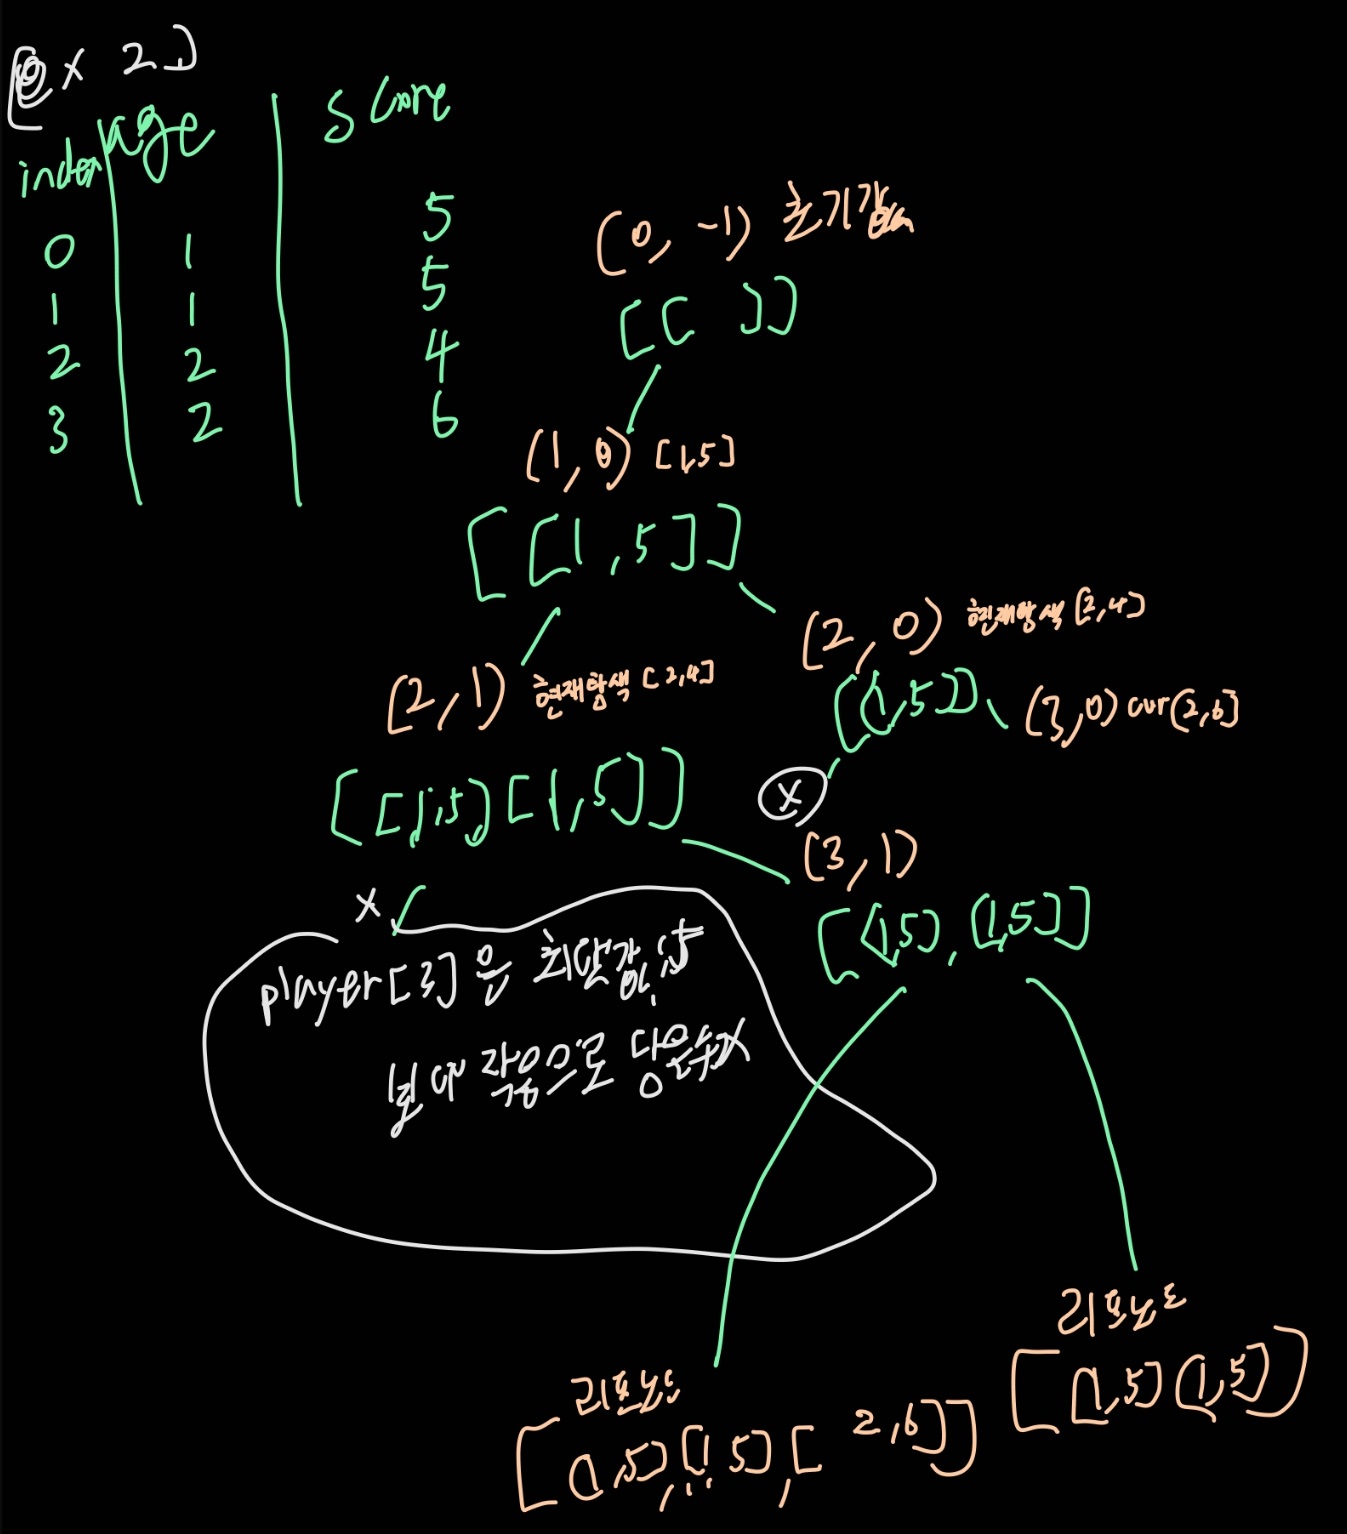 [ex 2]
index age score
0 1 5
1 1 5
2 2 4
3 2 6
(0, -1) 초기값
[[ ]]
(1, 0) [1,5]
[[1,5]]
(2, 0) 현재탐색 [2,4]
[(1,5]]
(3,0) cur[2,6]
(2, 1) 현재탐색 [2,4]
[[1,5][1,5]]
x
(3, 1)
[[1,5], [1,5]]
x
player[3]은
작음으로 담을수x
리프노드
[[1,5][1,5]]
리프노드
[[1,5],[1,5],[2,6]]